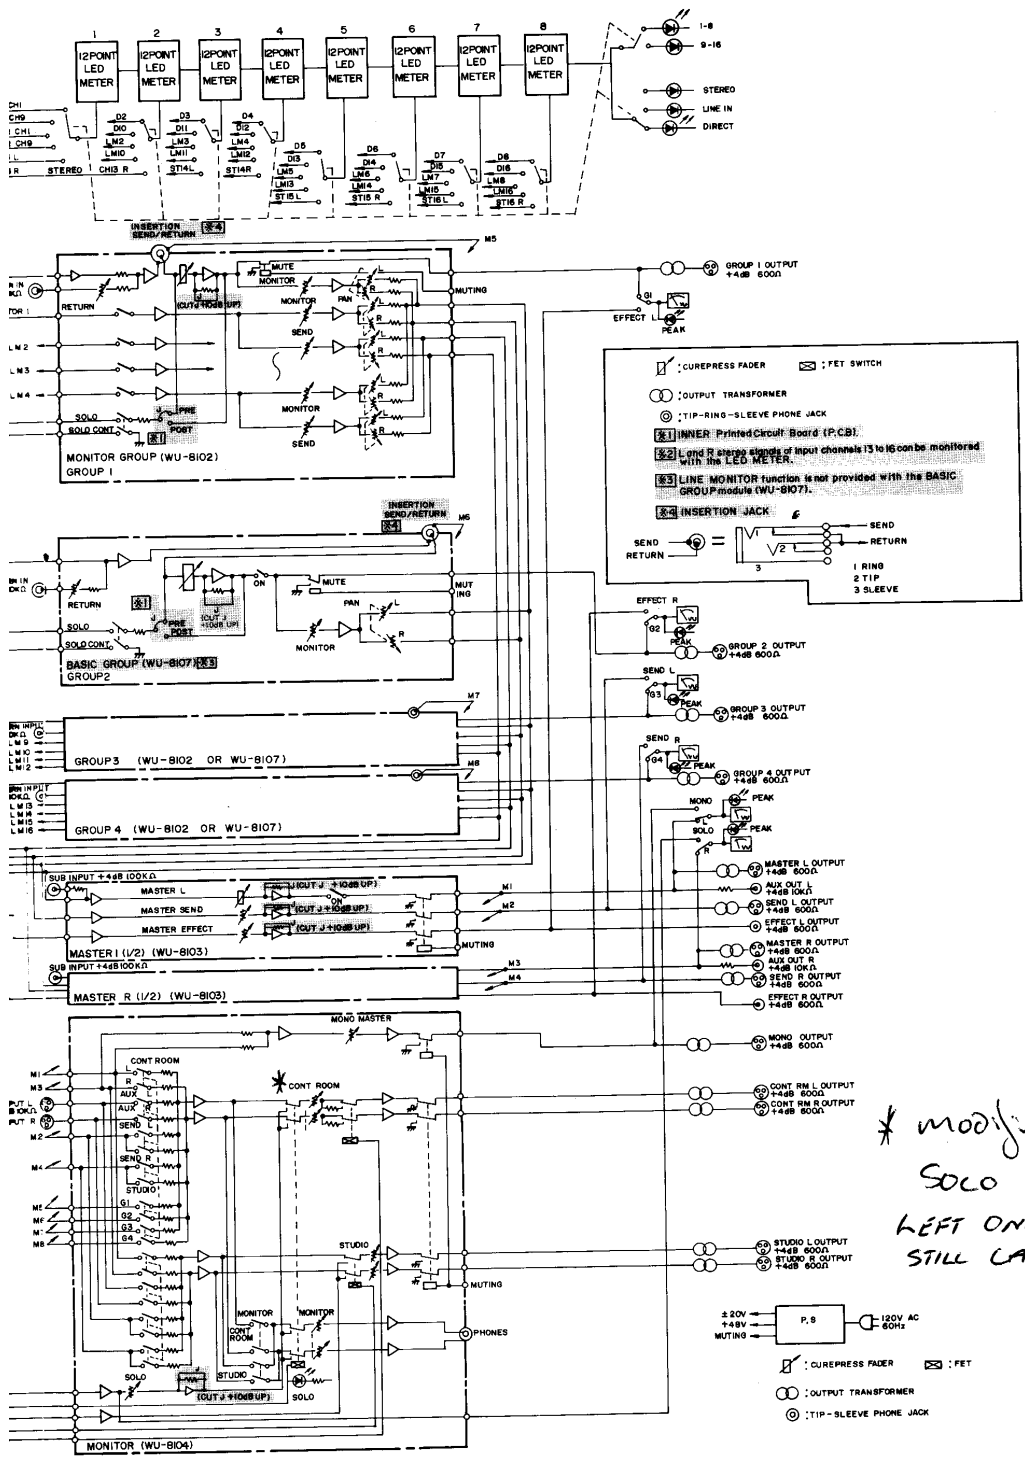 1 2 3 4 5 6 7 8
12POINT LED METER
12POINT LED METER
12POINT LED METER
12POINT LED METER
12POINT LED METER
12POINT LED METER
12POINT LED METER
12POINT LED METER
1-8
9-16
STEREO
LINE IN
DIRECT
CH1
CH9
CH1
CH9
L
R STEREO
D2
D10
LM2
LM10
CH13 R
D3
D11
LM3
LM11
ST14L
D4
D12
LM4
LM12
ST14R
D5
D13
LM5
LM13
ST15 L
D6
D14
LM6
LM14
ST15 R
D7
D15
LM7
LM15
ST16L
D8
D16
LM8
LM16
ST16 R
INSERTION
SEND/RETURN ※4
M5
MUTE
MONITOR
J
(CUT J +10dB UP)
RETURN
MONITOR
PAN
L
R
MUTING
SEND
L
R
LM2
LM3
LM4
MONITOR
SEND
L
R
SOLO
SOLO CONT
J PRE
POST
※1
MONITOR GROUP (WU-8102)
GROUP 1
GROUP 1 OUTPUT
+4dB 600Ω
G1
EFFECT L
PEAK
: CUREPRESS FADER
: FET SWITCH
: OUTPUT TRANSFORMER
: TIP-RING-SLEEVE PHONE JACK
※1 INNER Printed Circuit Board (P.C.B).
※2 L and R stereo signals of input channels 13 to 16 can be monitored
with the LED METER.
※3 LINE MONITOR function is not provided with the BASIC
GROUP module (WU-8107).
※4 INSERTION JACK
SEND
RETURN
=
1
2
3
SEND
RETURN
1 RING
2 TIP
3 SLEEVE
INSERTION
SEND/RETURN
※4
M6
RETURN
※1
J
(CUT J +10dB UP)
ON
MUTE
MUTING
PAN
L
R
MONITOR
SOLO
SOLO CONT
J PRE
POST
BASIC GROUP (WU-8107) ※3
GROUP2
EFFECT R
G2
PEAK
GROUP 2 OUTPUT
+4dB 600Ω
SEND L
G3
PEAK
GROUP 3 OUTPUT
+4dB 600Ω
SEND R
G4
PEAK
GROUP 4 OUTPUT
+4dB 600Ω
M7
LM9
LM10
LM11
LM12
GROUP3 (WU-8102 OR WU-8107)
M8
LM13
LM14
LM15
LM16
GROUP 4 (WU-8102 OR WU-8107)
MONO
PEAK
L
SOLO
PEAK
R
SUB INPUT +4dB 100KΩ
MASTER L
J (CUT J +10dB UP)
ON
MASTER SEND
J (CUT J +10dB UP)
MASTER EFFECT
J (CUT J +10dB UP)
MUTING
MASTER 1 (1/2) (WU-8103)
M1
M2
SUB INPUT +4dB 100KΩ
MASTER R (1/2) (WU-8103)
M3
M4
MASTER L OUTPUT
+4dB 600Ω
AUX OUT L
+4dB 10KΩ
SEND L OUTPUT
+4dB 600Ω
EFFECT L OUTPUT
+4dB 600Ω
MASTER R OUTPUT
+4dB 600Ω
AUX OUT R
+4dB 10KΩ
SEND R OUTPUT
+4dB 600Ω
EFFECT R OUTPUT
+4dB 600Ω
MONO MASTER
MONO OUTPUT
+4dB 600Ω
CONT ROOM
L
R
AUX L
AUX R
SEND L
SEND R
STUDIO
M1
M3
PUT L
PUT R
M2
M4
M5
M6
M7
M8
G1
G2
G3
G4
* CONT ROOM
CONT RM L OUTPUT
+4dB 600Ω
CONT RM R OUTPUT
+4dB 600Ω
SOLO
LEFT
STILL
STUDIO
STUDIO L OUTPUT
+4dB 600Ω
STUDIO R OUTPUT
+4dB 600Ω
MUTING
MONITOR
CONT
ROOM
STUDIO
MONITOR
PHONES
SOLO
J
(CUT J +10dB UP)
SOLO
MONITOR (WU-8104)
±20V
+48V
MUTING
P,S
120V AC
60Hz
: CUREPRESS FADER
: FET
: OUTPUT TRANSFORMER
: TIP-SLEEVE PHONE JACK